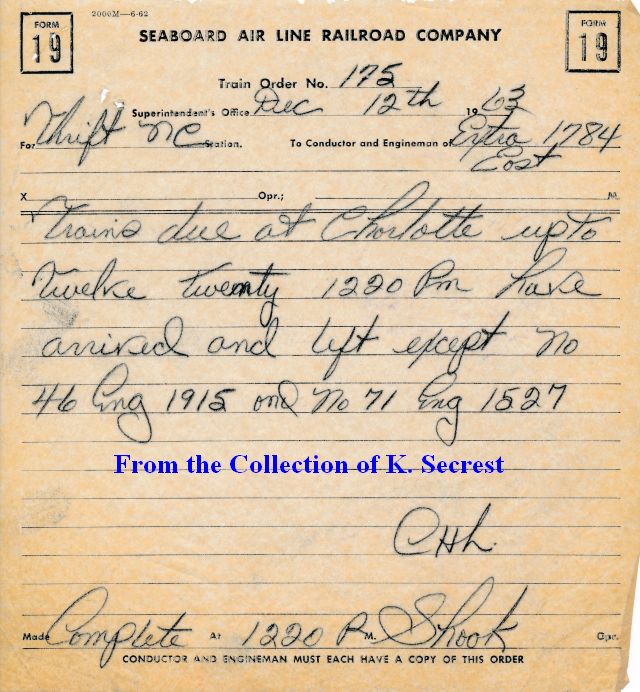 FORM 19
2000M—6-62
FORM 19
SEABOARD AIR LINE RAILROAD COMPANY
Train Order No. 175
Superintendent's Office Dec 12th 1963
For Thrift NC Station. To Conductor and Engineman of Extra 1784
East
X Opr.; M.
Trains due at Charlotte up to
Twelve twenty 1220 Pm have
arrived and left except No
46 Eng 1915 and No 71 Eng 1527
From the Collection of K. Secrest
CHL
Made Complete At 1220 P M. Shook Opr.
CONDUCTOR AND ENGINEMAN MUST EACH HAVE A COPY OF THIS ORDER